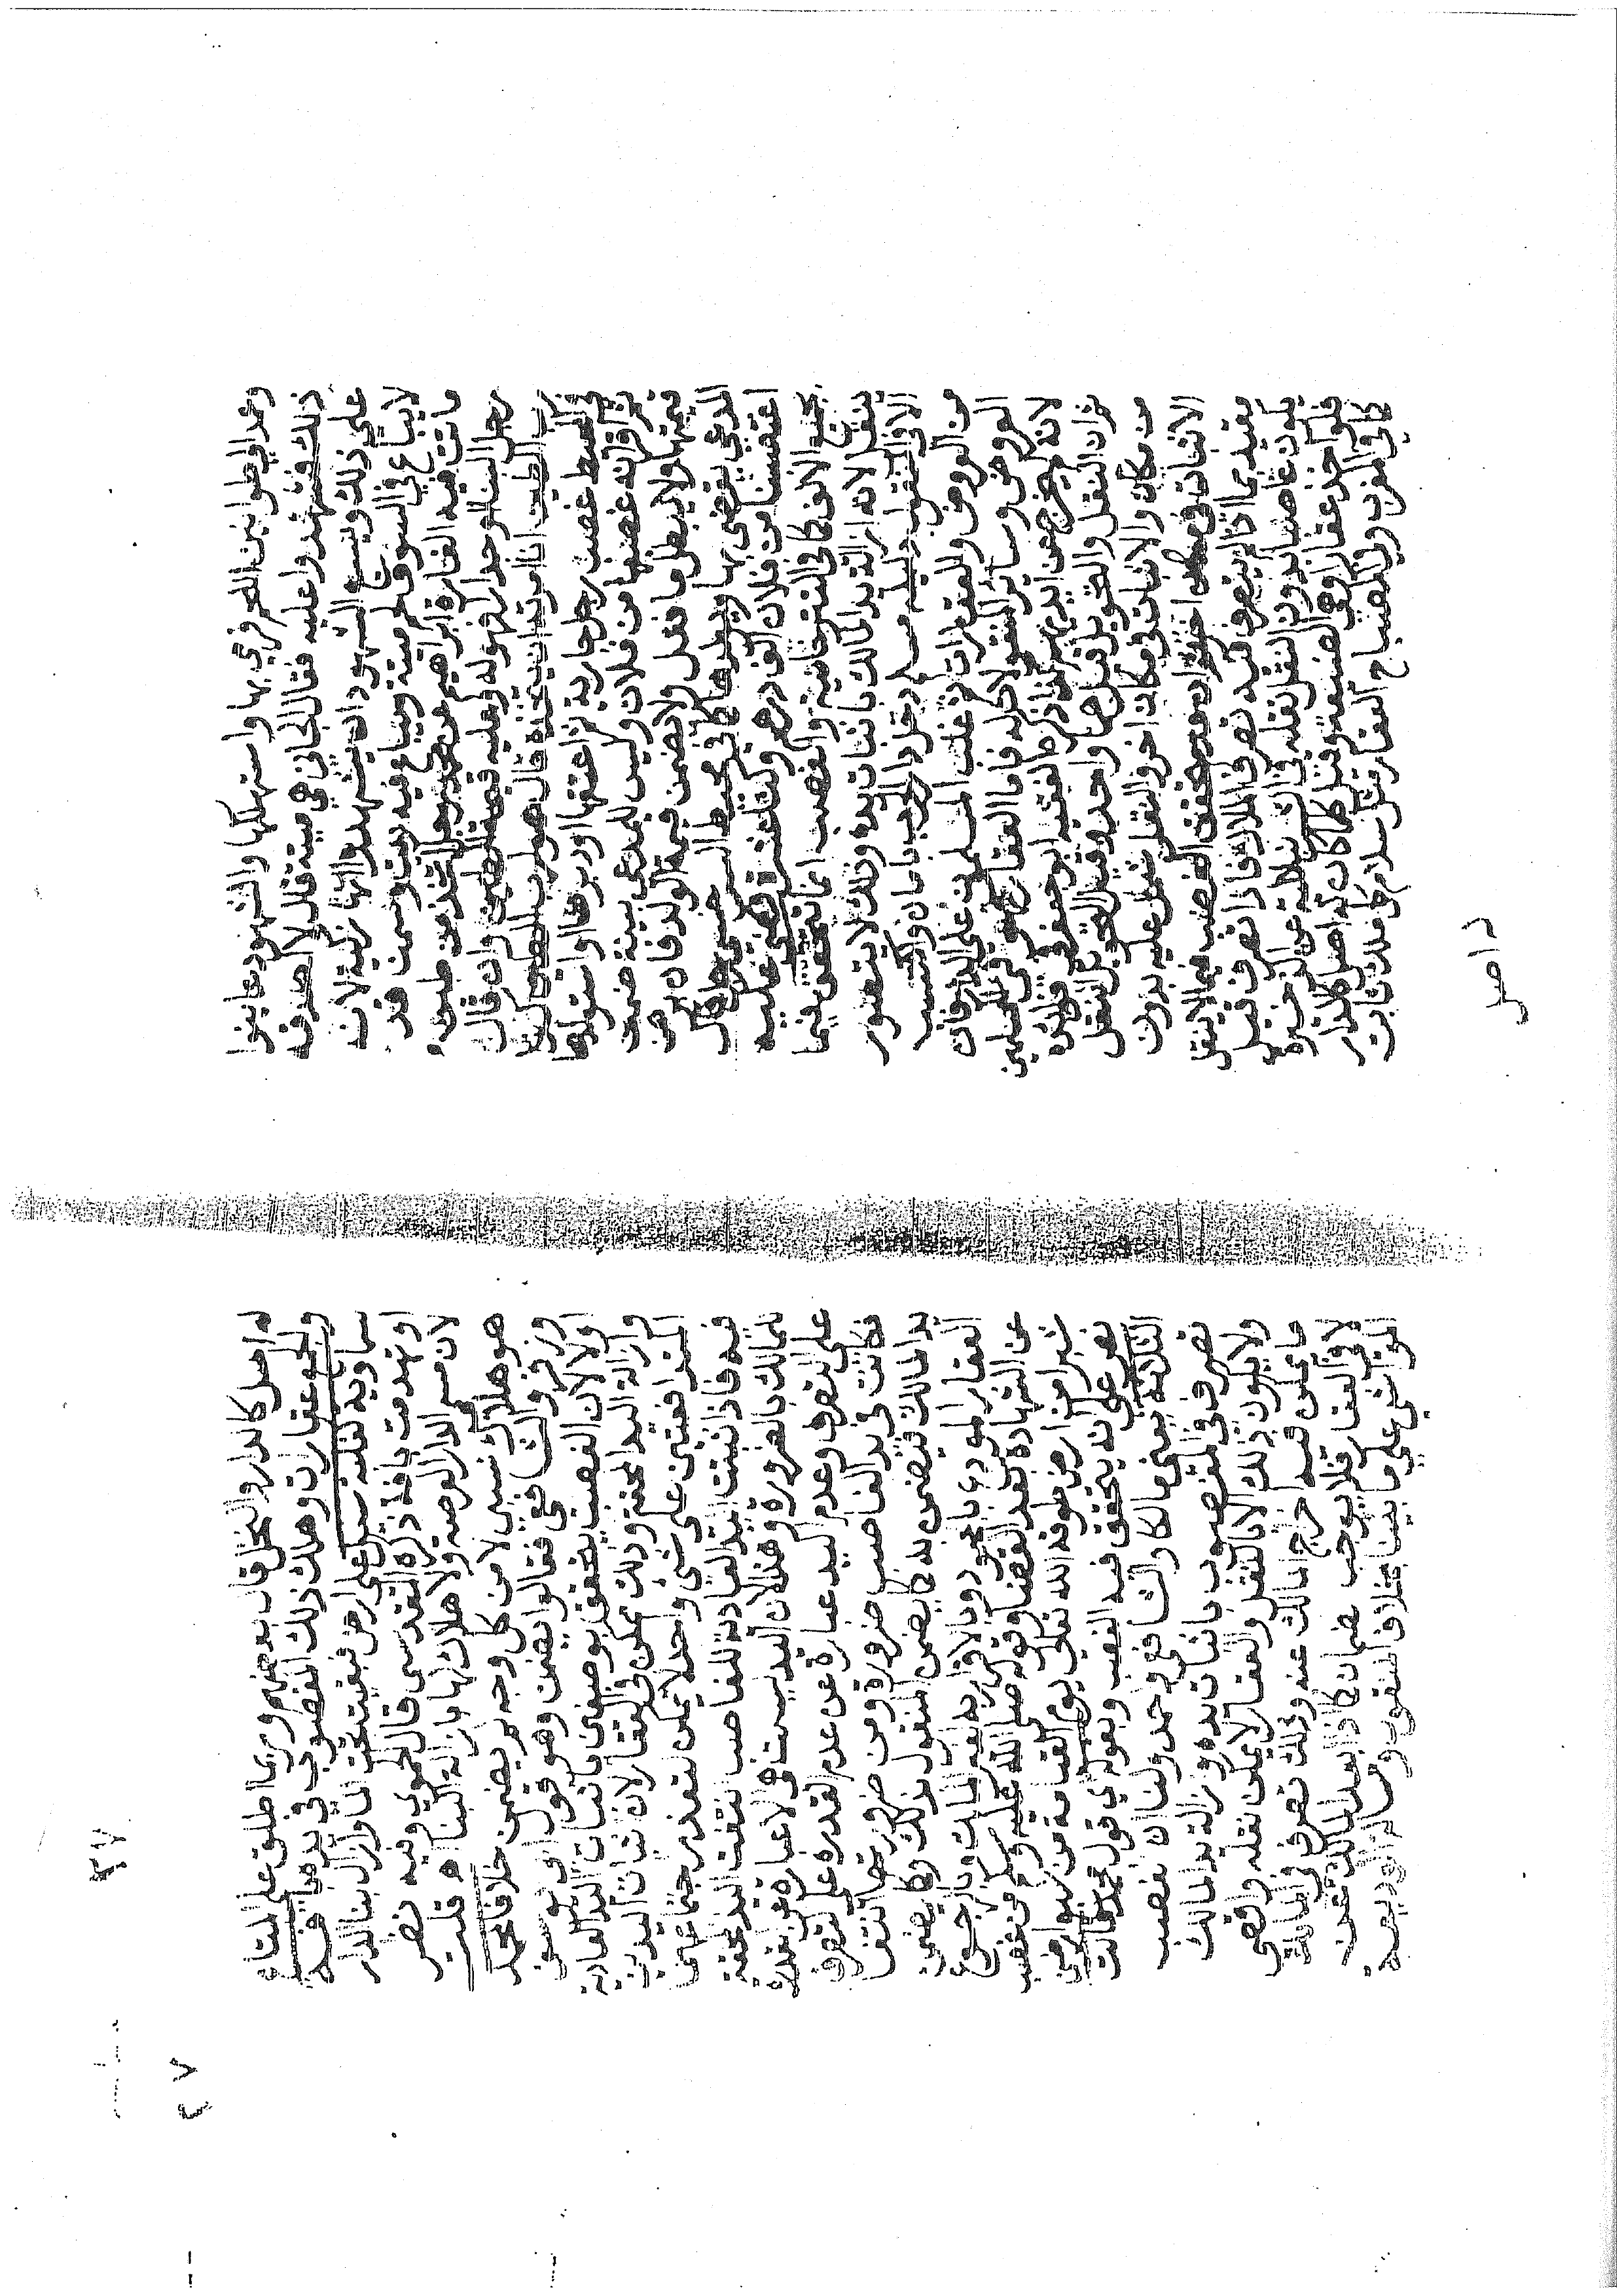 وعمد الي طوابين اللحم فرمي بها واستهلكها والشهود عاينوا
ذلك فشهدوا عليه فقال الجاني هي ميتة قال لا اصدقه
علي ذلك ويسع الشهود ان يشهدوا انها زكية لان
لا يباع في السوق لحم ميتة ويباع فيه زيت وسمن قد
ماتت فيه الفارة ابراهيم عن محمد رجل اتخذ من طين
رجل لبنا او جدارا فهو له وعليه قيمة الطين وان قال
رب الطين انا امرته ان يتخذه قال هو لرب الطين كذا
في المحيط غصب رجل جارية ثم اعتقها او دبرها او استولدها
ثم اقر انه غصبها من فلان وليس للمدعي بينة ضمن
قيمتها ولا يبطل ما فعل ولا يضمن قيمة الولد فان برهن
المدعي يقضى بها وبولدها كما في محيط السرخسي رجل قال
اغتصبنا من فلان الف درهم وكنا عشرة قضي عليه
بجميع الالف كما في التترخانية والغصب انما يتحقق فيما
ينقل لانه ازالة يد المالك باثبات يده وذلك لا يتصور
الا في المنقول مسلم دخل دار الحرب بامان واكتسب
من العروض والعقارات ثم غلب المسلمون على الدار فان
العروض وسائر المنقولات له فاما العقار فهو في للمسلمين
لانه لم يخرج عن ايديهم ذكره الفقيه ابو جعفر في فوائده
ثم ان النقل والتحويل قيل هما واحد وقيل التحويل النقل
من مكان والاثبات في مكان اخر والنقل يستعمل عليه بدون
الاثبات في مكان اخر يتحقق الغصب فيما لا ينقل
يفيد بما اذا لم يتصرف فيه تصرف الملاك فاذا تصرف قيل
يكون غاصبا بدون النقل نقله في عن الذخيرة
فلو اخذ عقارا وهو الضيعة وقيل كل ما كان له اصل كالدار
كما في المغرب وفي المصباح العقار مثل سلام كل ملك ثابت
له اصل
٤٧
٤٧
له اصل كالدار والنخل قال بعضهم وربما اطلق على المتاع
والجمع عقارات وهلك ذلك المغصوب في يده اي
سماوية كغلبة سيل على ارض فبقيت تحت الماء وزال بنا الدار
او تهدمت بافة ذكره المقدسي قال الحموي وفيه نظر
لان اسم الدار للعرصة ولا هلاك لها بازالة البناء قلت
هو هلاك نسبي لا من كل وجه لم يضمن خلافا لمحمد
وزفر والشافعي فقالوا يضمن وهو قول ابي يوسف
اولا لان الغصب يتحقق بوصفين باثبات اليد العادية
وازالة اليد المحقة وذلك يمكن في العقار لان اثبات اليدين
المتدافعتين على شئ واحد لا يمكن لتعذر اجتماعهما
فيه فاذا ثبتت اليد العادية للغاصب انتفت اليد المحقة
للمالك بالضرورة وهذا لان اليد ليست الا عبارة عن القدرة
على التصرف وعدم اليد عبارة عن عدم القدرة على التصرف
فكانت في يد الغاصب ضرورة ومن ضرورتها انتفا
يد المالك فيضمن به كما يضمن المنقول بذلك وكما يضمن
العقار المودع بالجحود وبالاقرار به لغير المالك وبالرجوع
عن الشهادة بعد القضا وقوله صلى الله عليه وسلم من غصب
شبرا من ارض طوقه الله تعالي يوم القيامة من سبع ارضين
نص على انه يتحقق فيه الغصب وبقوله اي قول محمد قالت
الثلاثة يعني مالكا والشافعي واحمد ولنا ان الغصب
تصرف في المغصوب باثبات يده وازالة يد المالك
ولا يكون ذلك الا بالنقل والعقار لا يمكن نقله واقصى
ما يمكن فيه اخراج المالك عنه وذلك تصرف في المالك
لا في العقار فلا يوجب ضمان كما اذا بعد المالك عن
المواشي علي ما بينا بخلاف المنقول ومسالة الوديعة